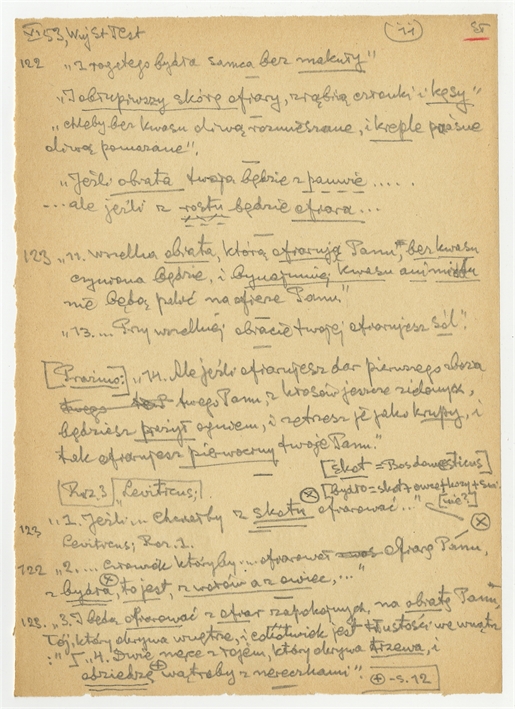 XI 53, Wuj St Test (11)
122 „I rogatego bydła samca bez makuły"
„I obłupiwszy skórę ofiary, zrąbią członki i kęsy"
„chleby bez kwasu oliwą rozmieszane, i kreple przaśne
oliwą pomazane".
„Jeśli obiata twoja będzie z panwie.....
...ale jeśli z rostu będzie ofiara...
123 „11. wszelka obiata, którą ofiarują Panu, bez kwasu
czyniona będzie, i bynajmniej kwasu ani miodu
nie będą palić na ofierze Panu."
„13.... Przy wszelkiej obiacie twojej ofiarujesz sól".
[Prażmo:] „14. Ale jeśli ofiarujesz dar pierwszego zboża
twego Panu, z kłosów jeszcze zielonych,
będziesz prażył ogniem, i zetrzesz je jako krupy, i
tak ofiarujesz pierwociny twoje Panu."
[skot = Bos domesticus]
Roz. 3 Leviticus; [bydło = skot + owce + kozy + świ.
[nie?]
123 „1. Jeśli... chciałby z skotu ofiarować..."
Leviticus; Roz. 1.
122 „2.... człowiek któryby... ofiarował ofiarę Panu,
z bydła, to jest, z wołów a z owiec,..."
123. „3. I będą ofiarować z ofiar zapokojnych, na obiatę Panu,
łój, który okrywa wnętrze, i cokolwiek jest tłustości we wnątrz
:" „4. Dwie nerce z łojem, który okrywa trzewa, i
odziedzę wątroby z nereczkami". -s. 12